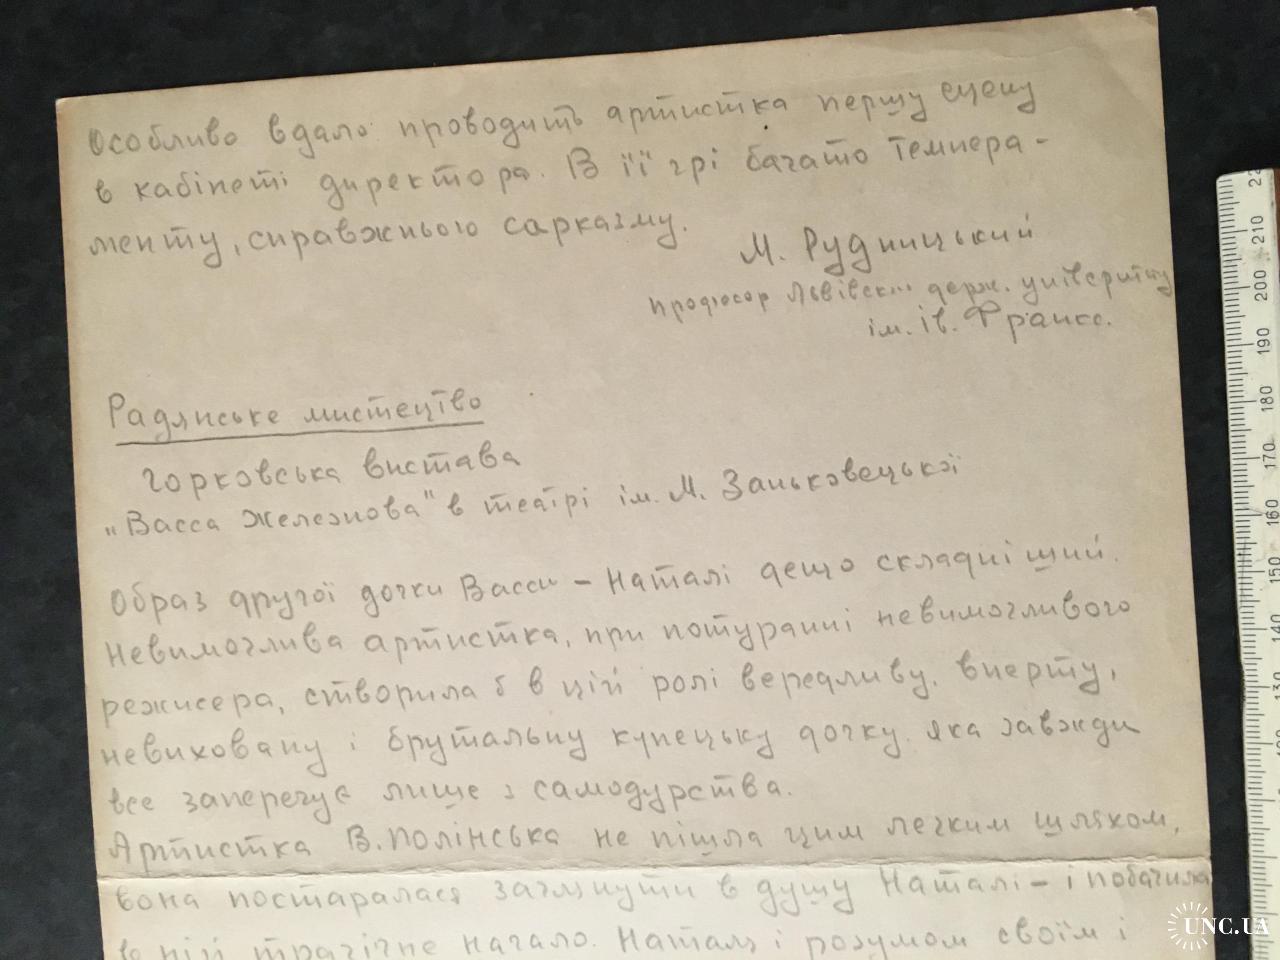 Особливо вдало проводить артистка першу сцену
в кабінеті директора. В її грі багато темпера-
менту, справжнього сарказму.
М. Рудницький
професор Львівськ... держ. універитту
ім. Ів. Франка.
Радянське мистецтво
Горковська вистава
„Васса Железнова" в театрі ім. М. Заньковецької
Образ другої дочки Васси – Наталі дещо складніший.
Невимоглива артистка, при потуранні невимогливого
режисера, створила б в цій ролі вередливу, вперту,
невиховану і брутальну купецьку дочку, яка завжди
все заперечує лише з самодурства.
Артистка В. Полінська не пішла цим легким шляхом,
вона постаралася заглянути в душу Наталі – і побачила
в ній трагічне начало. Наталя і розумом своїм і
UNC.UA
22
210
200
190
180
170
160
150
140
130